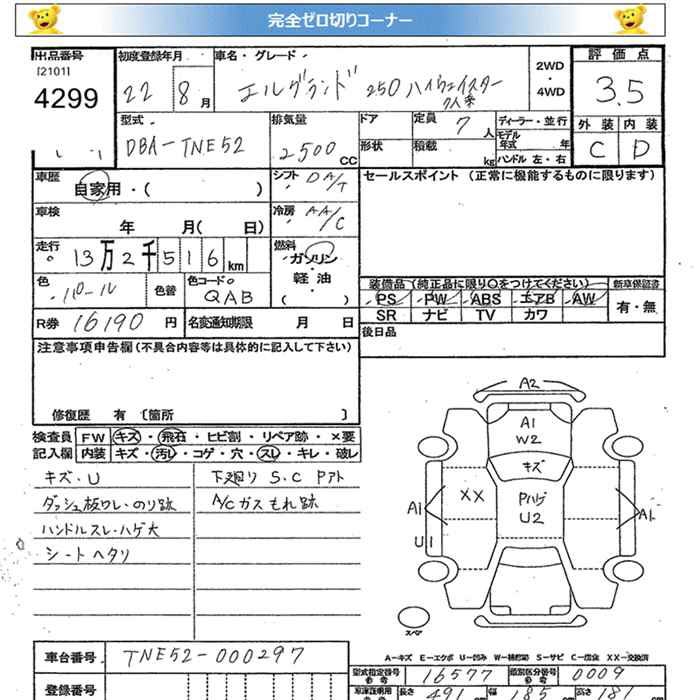 完全ゼロ切りコーナー
出品番号 初度登録年月 車名・グレード 2WD・4WD 評価点
[2101]
4299 22 8月 エルグランド 250 ハイウェイスター 7人乗 3.5
外装 内装
C D
型式 DBA-TNE52 排気量 2500 CC ドア 定員 7人 ディーラー・並行
形状 積載 kg モデル年式 年
ハンドル 左・右
車歴 自家用・( ) シフト DA/T セールスポイント (正常に機能するものに限ります)
車検 年 月( 日) 冷房 AA/C
走行 13万2千516km 燃料 ガソリン・軽油( )
色 パール 色替 色コードNo. QAB 装備品(純正品に限り○をつけてください) 新車保証書
PS PW ABS エアB AW 有・無
SR ナビ TV カワ
R券 16190円 名変通知期限 月 日 後日品
注意事項申告欄(不具合内容等は具体的に記入して下さい)
修復歴 有 〔箇所 〕
検査員 FW キズ・飛石・ヒビ割・リペア跡・×要
記入欄 内装 キズ・汚レ・コゲ・穴・スレ・キレ・破レ
キズ・U 下廻り S.C Pアト
ダッシュ板ワレ・のり跡 A/Cガスもれ跡
ハンドルスレ・ハゲ大
シートヘタリ
A2
A1
W2
キズ
XX Pハゲ
U2
A1 A1
U1
スペア
A-キズ E-エクボ U-凹み W-補修跡 S-サビ C-腐食 XX-交換済
車台番号 TNE52-000297
型式指定番号 参考 16577 類別区分番号 参考 0009
登録番号
車庫証明用 参考 長さ 491 cm 幅 185 cm 高さ 181 cm